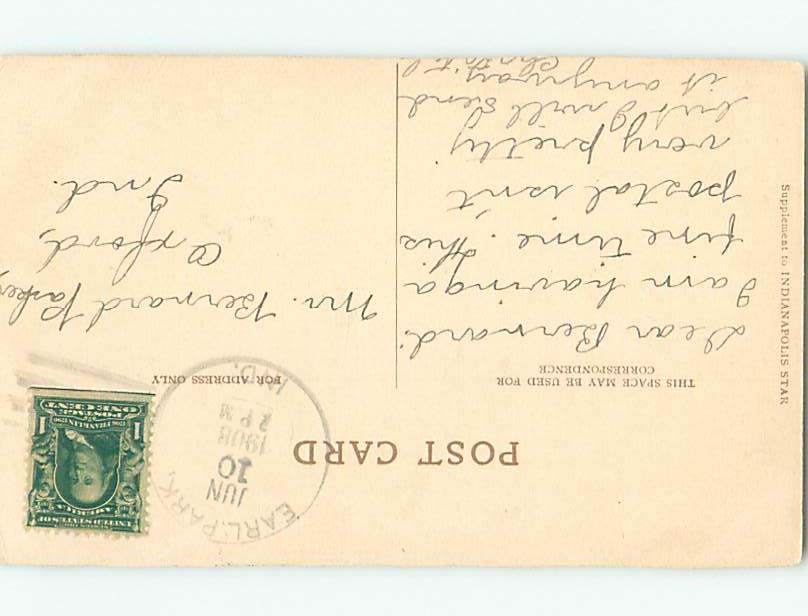 POST CARD
THIS SPACE MAY BE USED FOR
CORRESPONDENCE
FOR ADDRESS ONLY
Supplement to INDIANAPOLIS STAR
EARL PARK,
JUN
10
1908
2 PM
IND.
UNITED STATES OF
AMERICA
1706 FRANKLIN 1790
1 1
POSTAGE
ONE CENT
Dear Bernard:
I am having a
fine time. this
postal isn't
very pretty
but I will send
it anyway
Mr. Bernard Parker,
Oxford,
Ind.